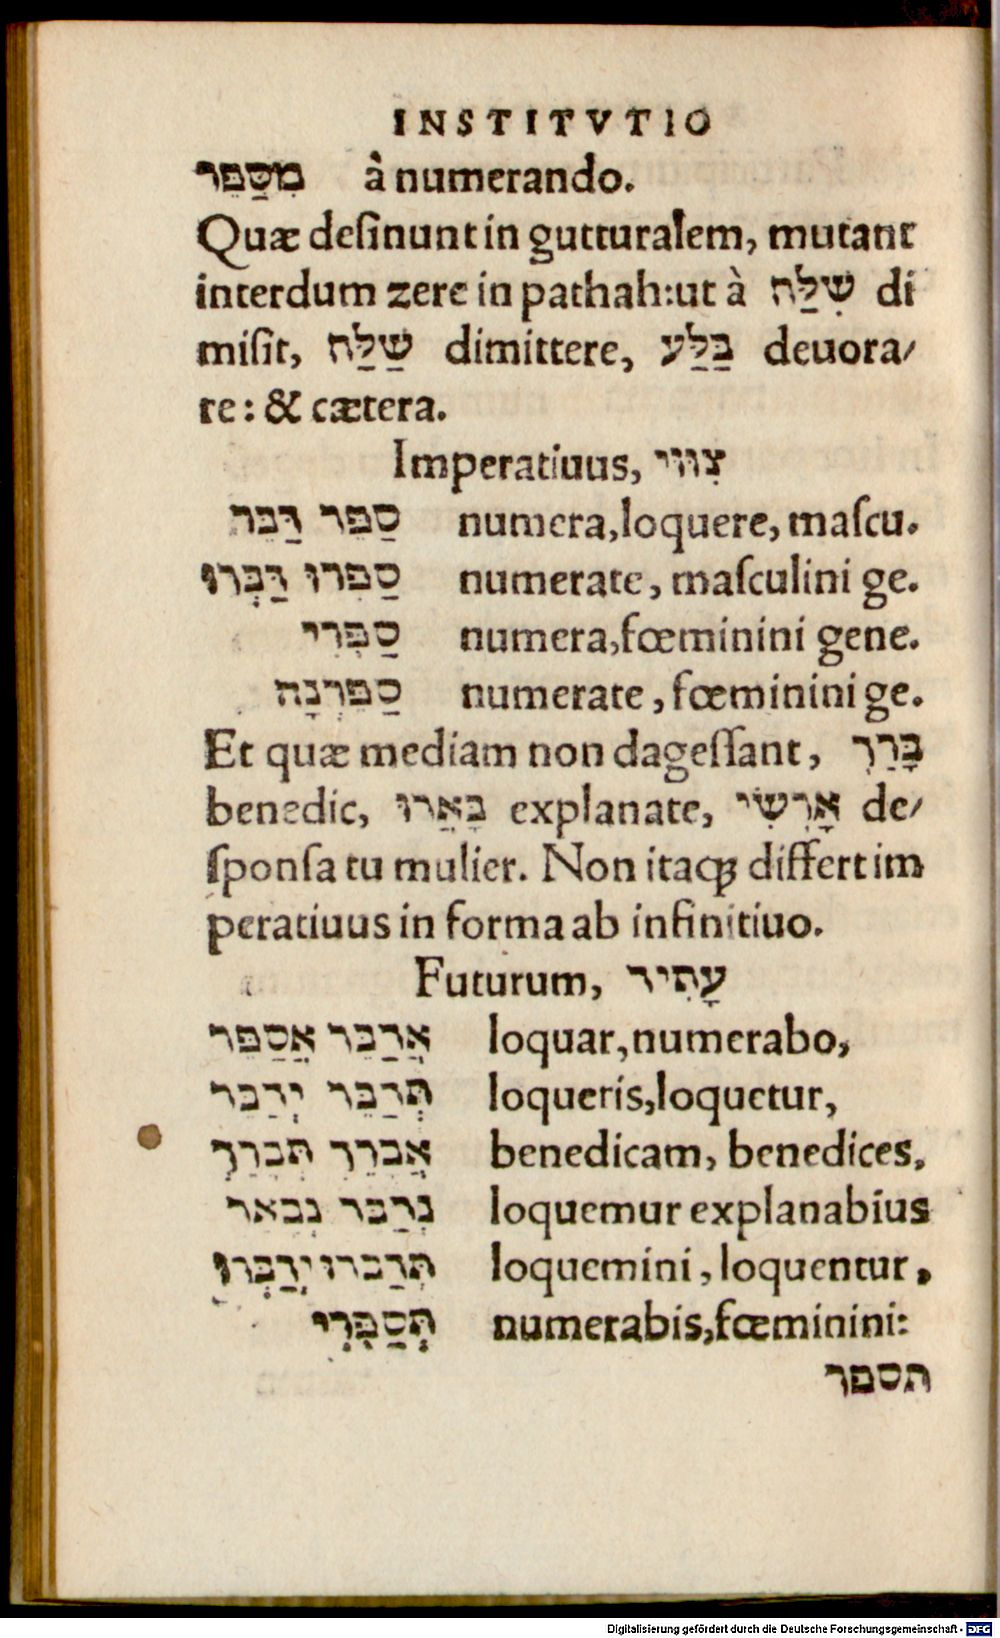 INSTITVTIO
מִסַּפֵּר à numerando.
Quæ desinunt in gutturalem, mutant
interdum zere in pathah: ut à שִׁלַּח di
misit, שַׁלַּח dimittere, בַּלַּע deuora/
re: & cætera.
Imperatiuus, צִוּוּי
סַפֵּר דַּבֵּר numera, loquere, mascu.
סַפְּרוּ דַּבְּרוּ numerate, masculini ge.
סַפְּרִי numera, fœminini gene.
סַפֵּרְנָה numerate, fœminini ge.
Et quæ mediam non dagessant, בָּרֵךְ
benedic, בָּאֲרוּ explanate, אָרְשִׂי de/
sponsa tu mulier. Non itaqꝫ differt im
peratiuus in forma ab infinitiuo.
Futurum, עָתִיד
אֲדַבֵּר אֲסַפֵּר loquar, numerabo,
תְּדַבֵּר יְדַבֵּר loqueris, loquetur,
אֲבָרֵךְ תְּבָרֵךְ benedicam, benedices,
נְדַבֵּר נְבָאֵר loquemur explanabius
תְּדַבְּרוּ יְדַבְּרוּ loquemini, loquentur,
תְּסַפְּרִי numerabis, fœminini:
תספר
Digitalisierung gefördert durch die Deutsche Forschungsgemeinschaft - DFG